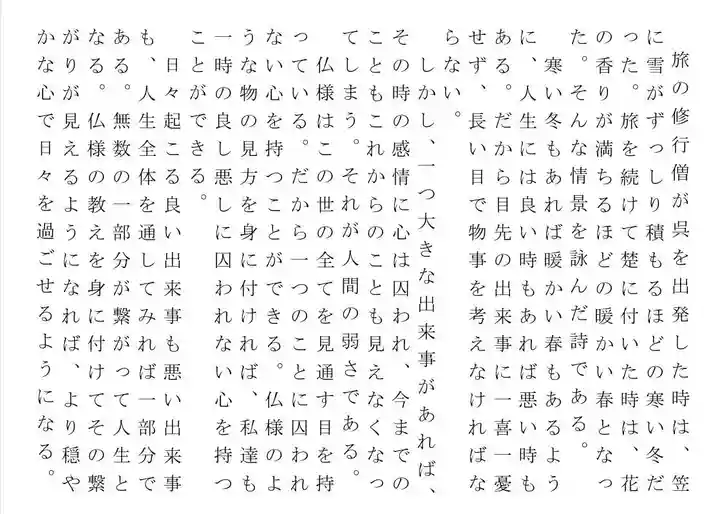 旅の修行僧が呉を出発した時は、笠
に雪がずっしり積もるほどの寒い冬だ
った。旅を続けて楚に付いた時は、花
の香りが満ちるほどの暖かい春となっ
た。そんな情景を詠んだ詩である。
寒い冬もあれば暖かい春もあるよう
に、人生には良い時もあれば悪い時も
ある。だから目先の出来事に一喜一憂
せず、長い目で物事を考えなければな
らない。
しかし、一つ大きな出来事があれば、
その時の感情に心は囚われ、今までの
こともこれからのことも見えなくなっ
てしまう。それが人間の弱さである。
仏様はこの世の全てを見通す目を持
っている。だから一つのことに囚われ
ない心を持つことができる。仏様のよ
うな物の見方を身に付ければ、私達も
一時の良し悪しに囚われない心を持つ
ことができる。
日々起こる良い出来事も悪い出来事
も、人生全体を通してみれば一部分で
ある。無数の一部分が繋がって人生と
なる。仏様の教えを身に付けてその繋
がりが見えるようになれば、より穏や
かな心で日々を過ごせるようになる。